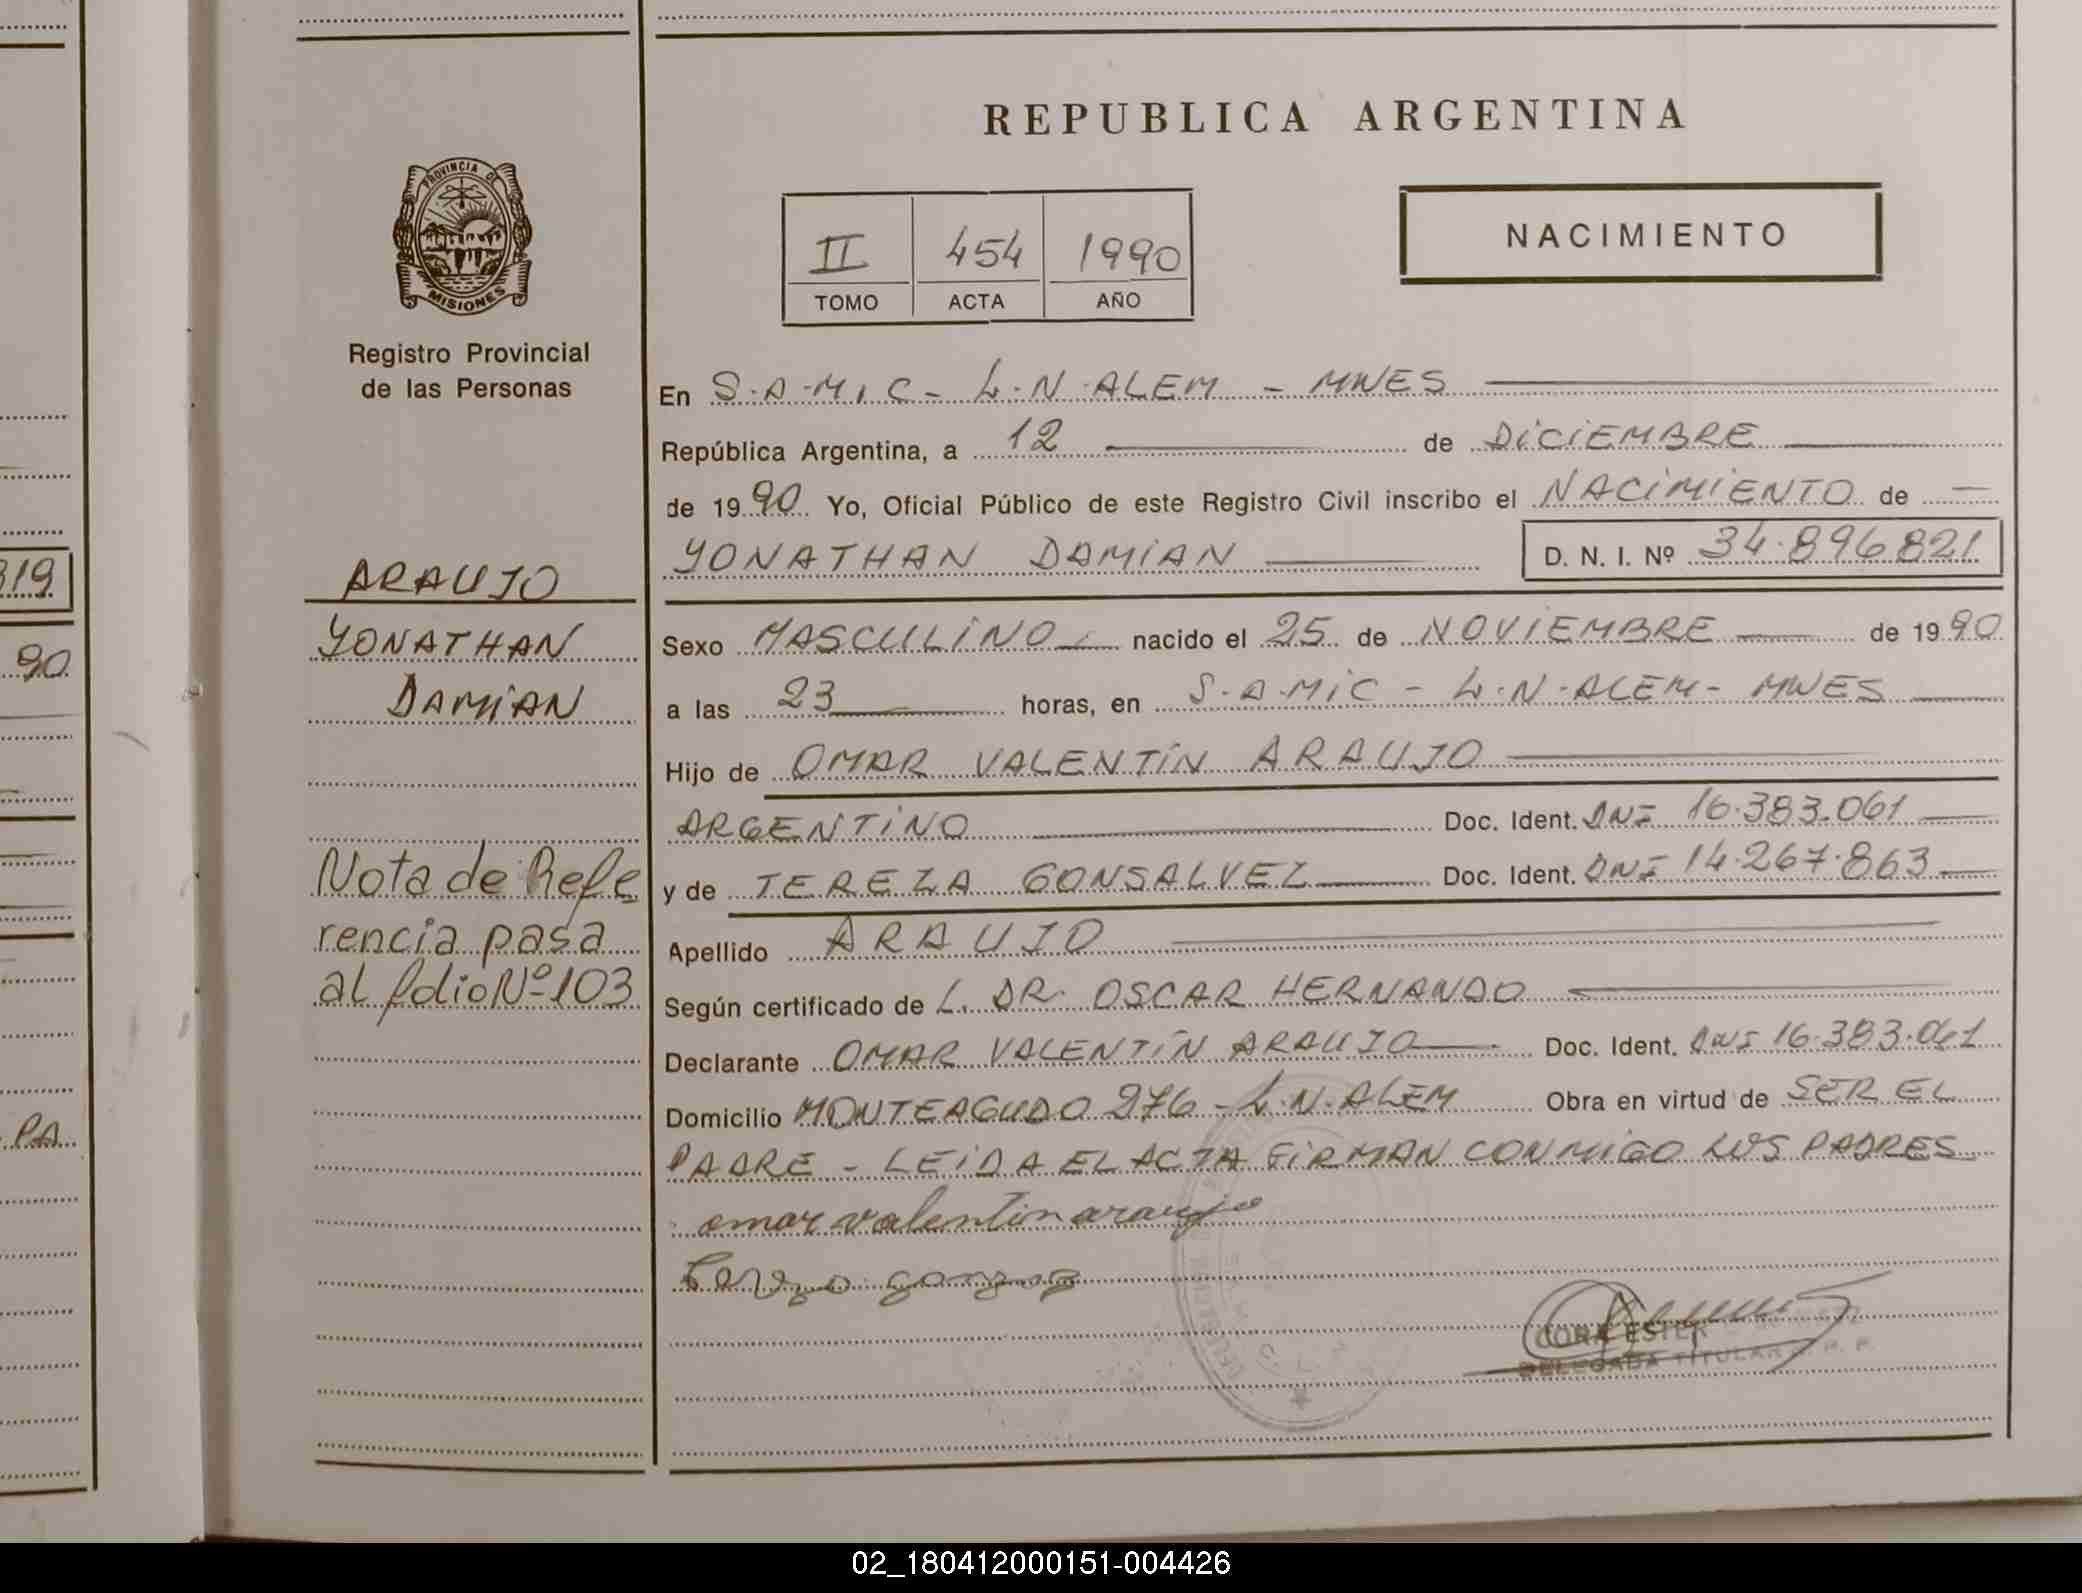 REPUBLICA ARGENTINA
PROVINCIA DE
MISIONES
Registro Provincial
de las Personas
II 454 1990
TOMO ACTA AÑO
NACIMIENTO
En S.A.M.I.C - L.N.ALEM - MNES
República Argentina, a 12 de DICIEMBRE
de 1990 Yo, Oficial Público de este Registro Civil inscribo el NACIMIENTO de
YONATHAN DAMIAN D. N. I. Nº 34.896.821
Sexo MASCULINO nacido el 25 de NOVIEMBRE de 1990
a las 23 horas, en S.A.MIC - L.N.ALEM - MNES
Hijo de OMAR VALENTIN ARAUJO
ARGENTINO Doc. Ident. DNI 16.383.061
y de TEREZA GONSALVEZ Doc. Ident. DNI 14.267.863
Apellido ARAUJO
Según certificado de L. DR. OSCAR HERNANDO
Declarante OMAR VALENTIN ARAUJO Doc. Ident. DNI 16.383.061
Domicilio MONTEAGUDO 276 - L.N.ALEM Obra en virtud de SER EL
PADRE - LEIDA EL ACTA FIRMAN CONMIGO LOS PADRES
omar valentin araujo
CORA ESTER
DELEGADA TITULAR R. P.
ARAUJO
YONATHAN
DAMIAN
Nota de Refe
rencia pasa
al folio Nº 103
319
90
PA
02_180412000151-004426